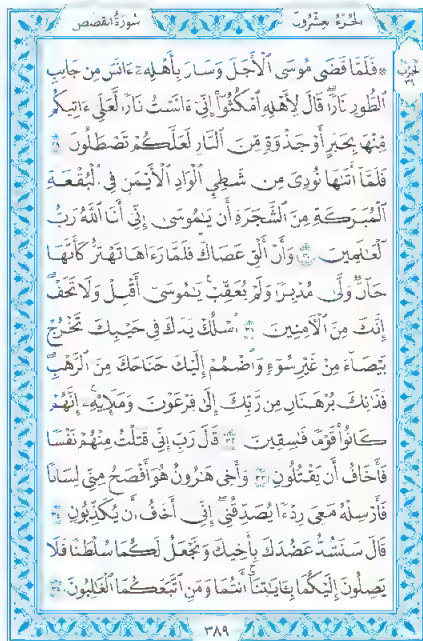 الجزء العشرون سورة القصص
۞ فَلَمَّا قَضَىٰ مُوسَى ٱلْأَجَلَ وَسَارَ بِأَهْلِهِۦٓ ءَانَسَ مِن جَانِبِ
ٱلطُّورِ نَارًا قَالَ لِأَهْلِهِ ٱمْكُثُوٓا۟ إِنِّىٓ ءَانَسْتُ نَارًا لَّعَلِّىٓ ءَاتِيكُم
مِّنْهَا بِخَبَرٍ أَوْ جَذْوَةٍ مِّنَ ٱلنَّارِ لَعَلَّكُمْ تَصْطَلُونَ ٢٩
فَلَمَّآ أَتَىٰهَا نُودِىَ مِن شَٰطِئِ ٱلْوَادِ ٱلْأَيْمَنِ فِى ٱلْبُقْعَةِ
ٱلْمُبَٰرَكَةِ مِنَ ٱلشَّجَرَةِ أَن يَٰمُوسَىٰٓ إِنِّىٓ أَنَا ٱللَّهُ رَبُّ
ٱلْعَٰلَمِينَ ٣٠ وَأَنْ أَلْقِ عَصَاكَ فَلَمَّا رَءَاهَا تَهْتَزُّ كَأَنَّهَا
جَآنٌّ وَلَّىٰ مُدْبِرًا وَلَمْ يُعَقِّبْ يَٰمُوسَىٰٓ أَقْبِلْ وَلَا تَخَفْ
إِنَّكَ مِنَ ٱلْءَامِنِينَ ٣١ ٱسْلُكْ يَدَكَ فِى جَيْبِكَ تَخْرُجْ
بَيْضَآءَ مِنْ غَيْرِ سُوٓءٍ وَٱضْمُمْ إِلَيْكَ جَنَاحَكَ مِنَ ٱلرَّهْبِ
فَذَٰنِكَ بُرْهَٰنَانِ مِن رَّبِّكَ إِلَىٰ فِرْعَوْنَ وَمَلَإِي۟هِۦٓ إِنَّهُمْ
كَانُوا۟ قَوْمًا فَٰسِقِينَ ٣٢ قَالَ رَبِّ إِنِّى قَتَلْتُ مِنْهُمْ نَفْسًا
فَأَخَافُ أَن يَقْتُلُونِ ٣٣ وَأَخِى هَٰرُونُ هُوَ أَفْصَحُ مِنِّى لِسَانًا
فَأَرْسِلْهُ مَعِىَ رِدْءًا يُصَدِّقُنِىٓ إِنِّىٓ أَخَافُ أَن يُكَذِّبُونِ ٣٤
قَالَ سَنَشُدُّ عَضُدَكَ بِأَخِيكَ وَنَجْعَلُ لَكُمَا سُلْطَٰنًا فَلَا
يَصِلُونَ إِلَيْكُمَا بِـَٔايَٰتِنَآ أَنتُمَا وَمَنِ ٱتَّبَعَكُمَا ٱلْغَٰلِبُونَ ٣٥
٣٨٩